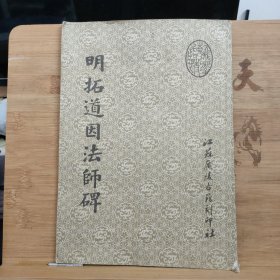 明拓道因法師碑
江苏广陵古籍刻印社